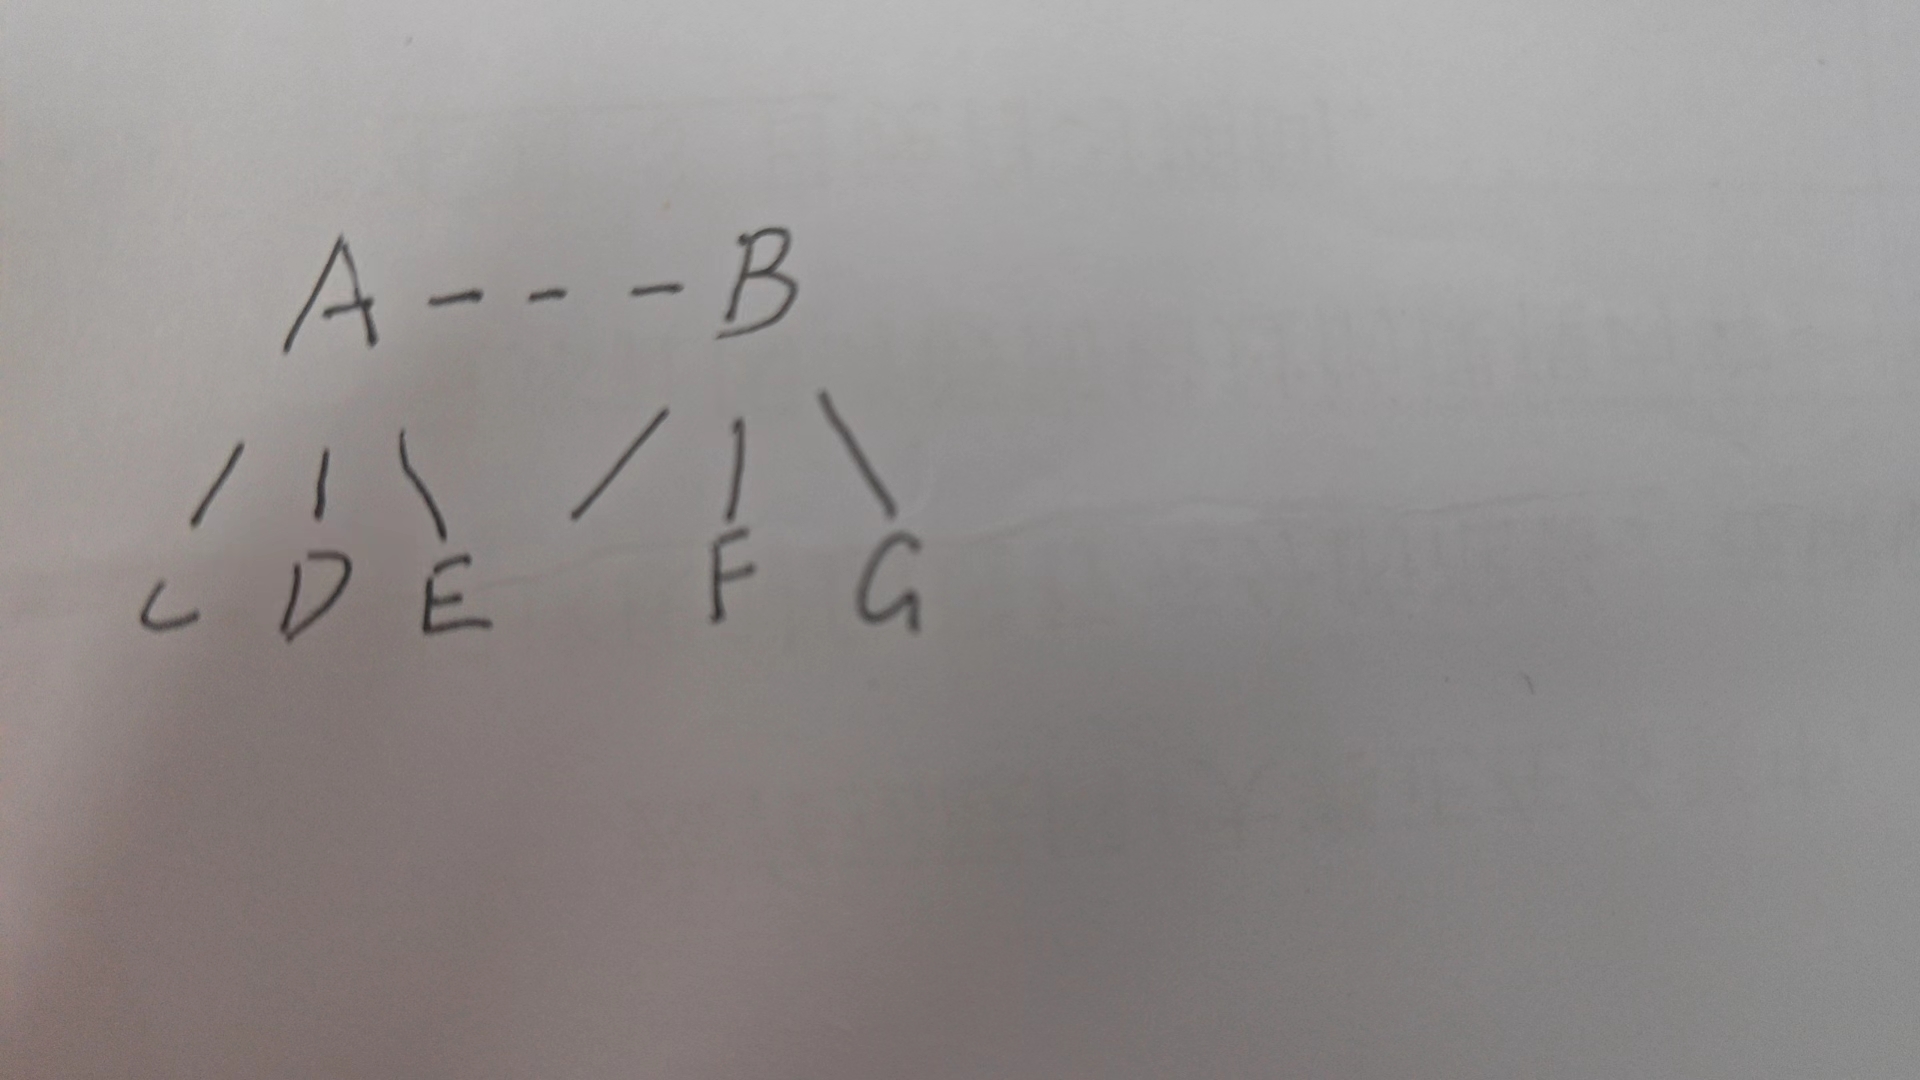 A - - - B
C D E F G